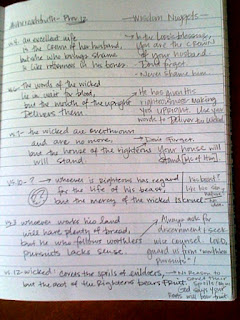 Prov 12 - Wisdom Nuggets
vs 4 an excellent wife
is the crown of her husband,
but she who brings shame
is like rottenness in his bones
you are the crown
of your husband
Don't forget
- Never shame him
vs 6 the words of the wicked
lie in wait for blood,
but the mouth of the upright
Delivers them
→ He has given His
righteousness making
you upright. Use your
words to Deliver the wicked
vs 7 - the wicked are overthrown
and are no more,
but the house of the righteous
will stand.
Don't forget
your house will
stand
vs 10 - ? → Whoever is righteous has regard
for the life of his beast,
but the mercy of the wicked is cruel
vs 11 whoever works his land
will have plenty of bread,
but he who follows worthless
pursuits lacks sense.
→ Always ask for
discernment & seek
wise counsel. Lord,
guard us from "worthless
pursuits"!
vs 12 - wicked covets the spoils of evildoers,
but the root of the Righteous bears Fruit.
No Reason to
God says your